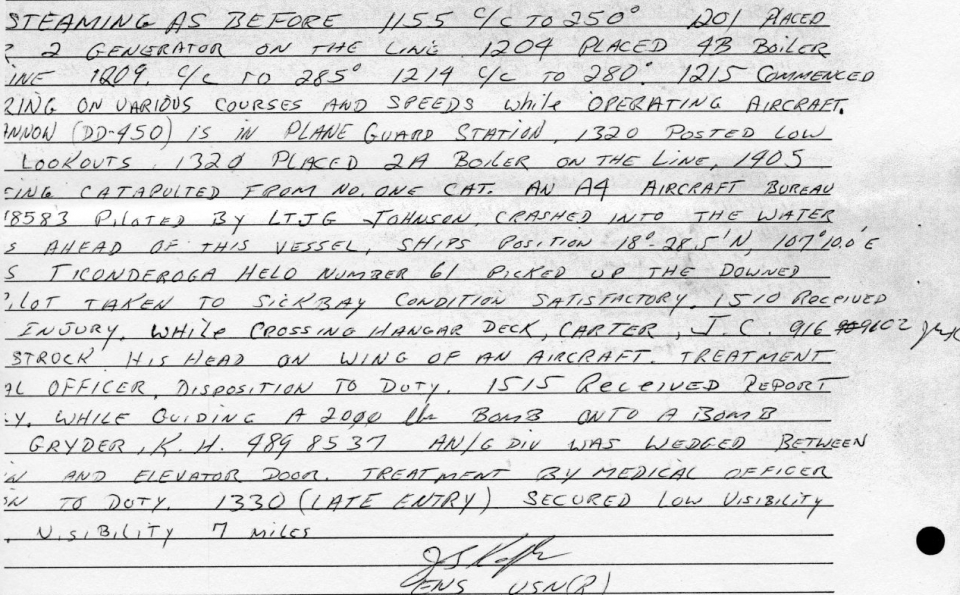 STEAMING AS BEFORE 1155 C/C TO 250° 1201 PLACED
2 GENERATOR ON THE LINE 1204 PLACED 4B BOILER
INE 1209, C/C TO 285° 1214 C/C TO 280° 1215 COMMENCED
RING ON VARIOUS COURSES AND SPEEDS while OPERATING AIRCRAFT.
ANNON (DD-450) IS IN PLANE GUARD STATION, 1320 POSTED LOW
LOOKOUTS, 1320 PLACED 2A BOILER ON THE LINE, 1405
EING CATAPULTED FROM NO. ONE CAT. AN A4 AIRCRAFT BUREAU
18583 PILOTED BY LTJG JOHNSON, CRASHED INTO THE WATER
S AHEAD OF THIS VESSEL, SHIPS POSITION 18°-28.5'N, 107°10.0'E
S TICONDEROGA HELO NUMBER 61 PICKED UP THE DOWNED
PILOT TAKEN TO SICKBAY CONDITION SATISFACTORY. 1510 RECEIVED
INJURY. WHILE CROSSING HANGAR DECK, CARTER, J.C. 916 9602
STROCK HIS HEAD ON WING OF AN AIRCRAFT. TREATMENT
AL OFFICER, DISPOSITION TO DUTY. 1515 RECEIVED REPORT
Y. WHILE GUIDING A 2000 lb BOMB ONTO A BOMB
GRYDER, K. H. 489 8537 AN/G DIV WAS WEDGED BETWEEN
N AND ELEVATOR DOOR. TREATMENT BY MEDICAL OFFICER
ON TO DUTY. 1330 (LATE ENTRY) SECURED LOW VISIBILITY
. VISIBILITY 7 MILES
ENS USN(R)